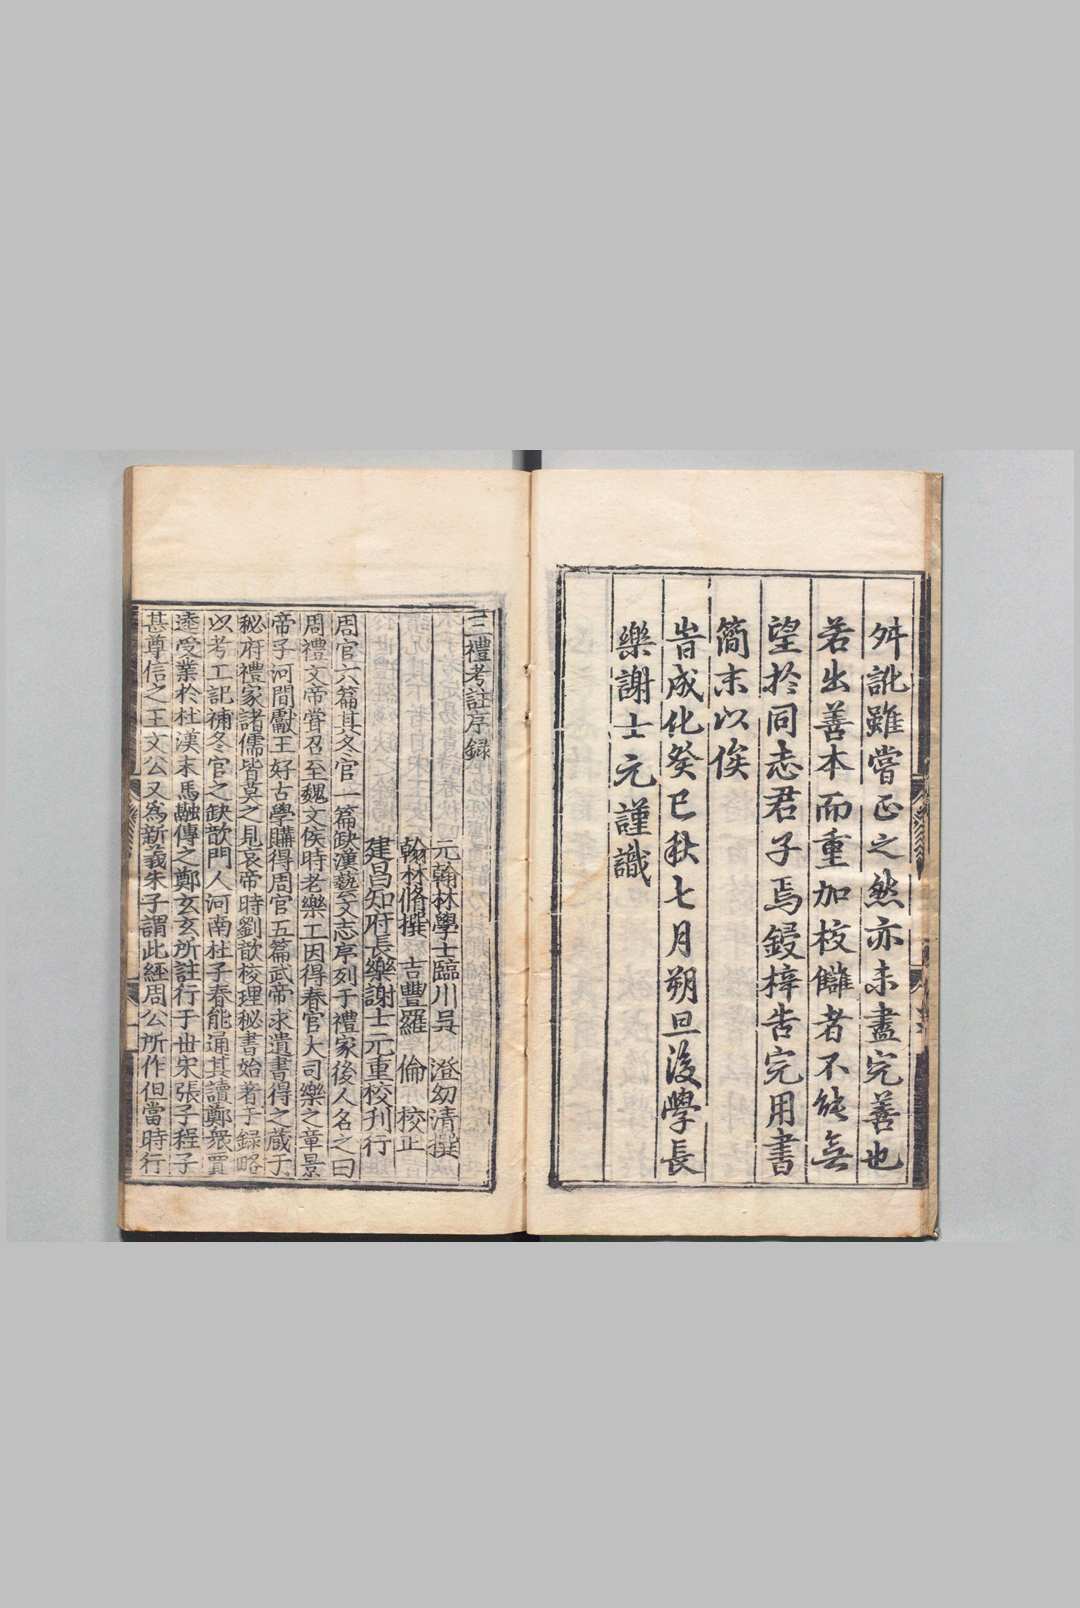 舛訛雖嘗正之然亦未盡完善也
若出善本而重加校讎者不能無
望於同志君子焉鋟梓告完用書
簡末以俟
旹成化癸巳秋七月朔旦後學長
樂謝士元謹識
三禮考註序録
元翰林學士臨川吳 澄幼清撰
翰林脩撰 吉豐羅 倫 校正
建昌知府長樂謝士元重校刊行
周官六篇其冬官一篇缺漢藝文志序列于禮家後人名之曰
周禮文帝嘗召至魏文侯時老樂工因得春官大司樂之章景
帝子河間獻王好古學購得周官五篇武帝求遺書得之藏于
秘府禮家諸儒皆莫之見哀帝時劉歆校理秘書始著于録略
以考工記補冬官之缺歆門人河南杜子春能通其讀鄭衆賈
逵受業於杜漢末馬融傳之鄭玄玄所註行于世宋張子程子
甚尊信之王文公又爲新義朱子謂此經周公所作但當時行